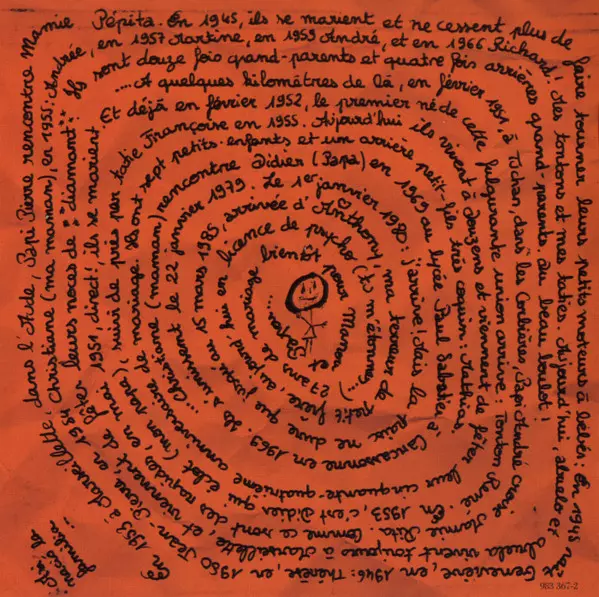 à Marseillette, dans l'Aude, Papi Pierre rencontre Mamie Pépita. En 1945, ils se marient et ne cessent plus de faire tourner leurs petits moteurs à bébés: En 1945 naît Geneviève, en 1946: Thérèse, en 1950 Jean-Pierre
En 1953 Christiane (ma maman), en 1955: Andrée, en 1957 Martine, en 1959 André, et en 1966 Richard! Mes tontons et mes taties. Aujourd'hui, abuelo et abuela vivent toujours à Marseillette, et viennent de fêter
leurs noces de "diamant". Ils sont douze fois grand-parents et quatre fois arrières grand-parents. Du beau boulot!
....A quelques kilomètres de là, en février 1951, à Tuchan, dans les Corbières, Papi André croise Mamie Rita. Comme ce sont des rapides, en mai 1951, direct! ils se marient
Et déjà en février 1952, le premier né de cette fulgurante union arrive: Tonton René. En 1953 c'est Didier qui éclot (mon papa), suivi de près par tatie Françoise en 1955. Aujourd'hui ils vivent à Douzens et viennent de fêter leur cinquante-quatrième anniversaire de mariage. Ils ont sept petits-enfants et un arrière petit-fils très coquin: Mathias
...Christiane (maman) rencontre Didier (Papa) en 1969 au lycée Paul Sabatier à Carcassonne en 1969. Ils s'unissent le 22 janvier 1979. Le 1er janvier 1980: j'arrive! Mais la paix ne dure que jusqu'au 15 mars 1985, arrivée d'Anthony, ma terreur de petit frère, aujourd'hui en licence de psycho (tu m'étonnes...)
27 ans de mariage bientôt pour Maman et Papa...
Así nació la familia...
983 367-2